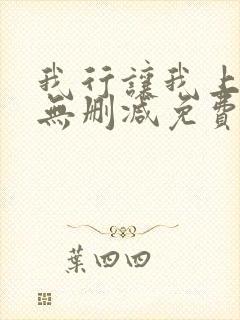 我行讓我上
無刪減免費
葉四四